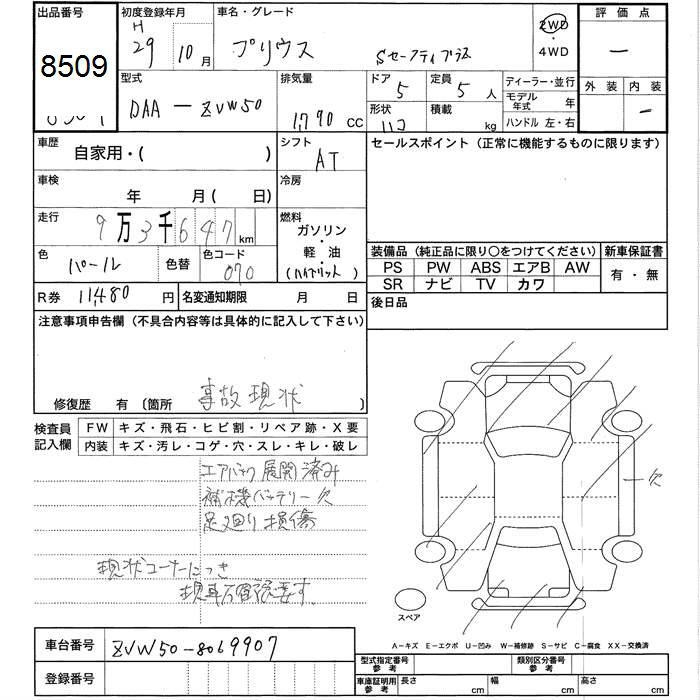 出品番号 初度登録年月 車名・グレード 評価点
8509 H 29 10月 プリウス Sセーフティプラス 2WD・4WD ー
型式 排気量 ドア 定員 ディーラー・並行 外装 内装
DAA－ZVW50 1,790 CC 5 5人 モデル年式 年 ー
形状 ハコ 積載 kg ハンドル 左・右
車歴 自家用・( ) シフト AT セールスポイント（正常に機能するものに限ります）
車検 年 月( 日) 冷房
走行 9万3千647km 燃料 ガソリン・軽油
色 パール 色替 色コード 070 (ハイブリット)
装備品（純正品に限り○をつけてください） 新車保証書
PS PW ABS エアB AW 有・無
SR ナビ TV カワ
R券 11,480円 名変通知期限 月 日 後日品
注意事項申告欄（不具合内容等は具体的に記入して下さい）
修復歴 有（箇所 事故現状 ）
検査員記入欄 FW キズ・飛石・ヒビ割・リペア跡・X要
内装 キズ・汚レ・コゲ・穴・スレ・キレ・破レ
エアバック展開済み
補機バッテリー欠
足廻り損傷
欠
現状コーナーにつき
現車確認要す。
スペア
A－キズ E－エクボ U－凹み W－補修跡 S－サビ C－腐食 XX－交換済
車台番号 ZVW50-8069907
登録番号
型式指定番号参考 類別区分番号参考
車庫証明用参考 長さ cm 幅 cm 高さ cm